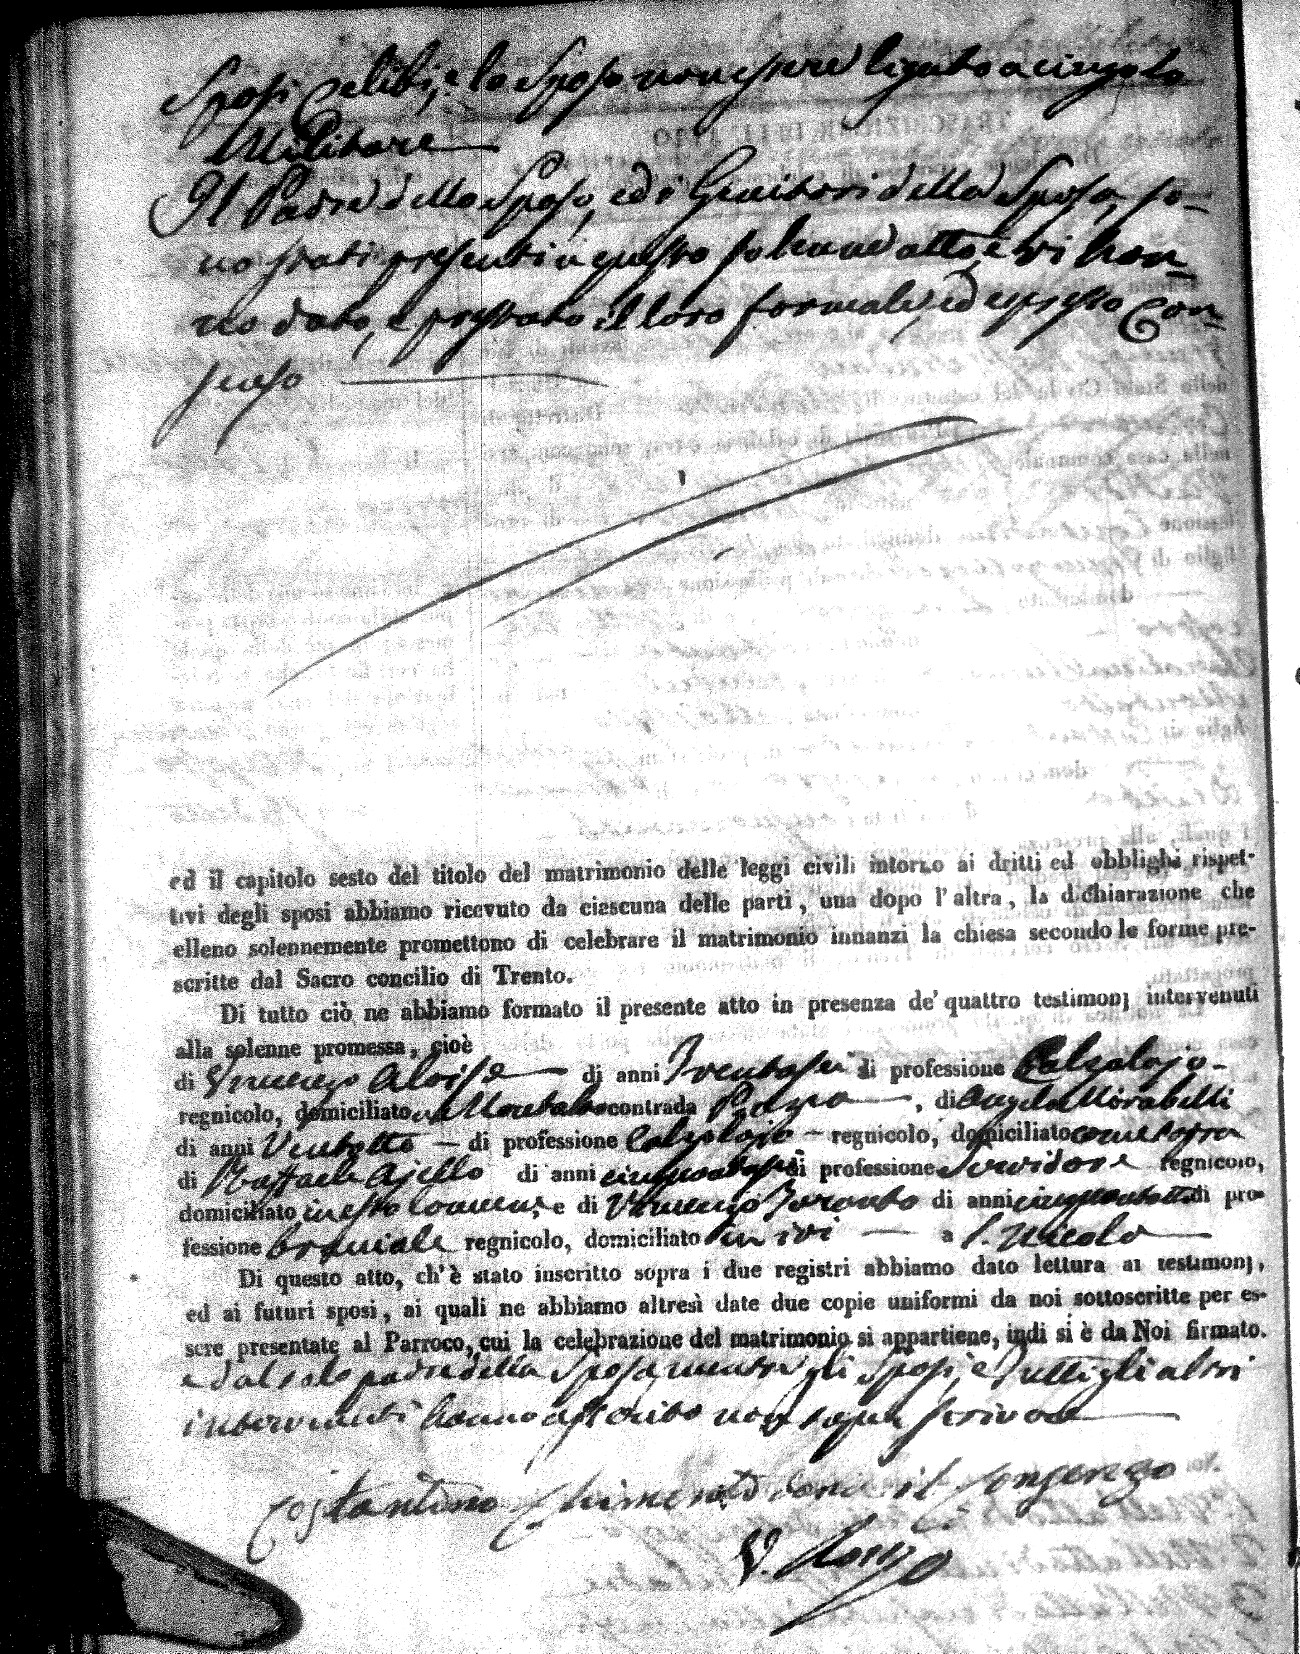 Sposi Celibi, e lo Sposo non essere ligato a cingolo
Militare
Il Padre dello Sposo, ed i Genitori della Sposa, so-
no stati presenti a questo solenne atto, e vi han-
no dato, e prestato il loro formale, ed espresso Con-
senso
ed il capitolo sesto del titolo del matrimonio delle leggi civili intorno ai dritti ed obblighi rispet-
tivi degli sposi abbiamo ricevuto da ciascuna delle parti, una dopo l'altra, la dichiarazione che
elleno solennemente promettono di celebrare il matrimonio innanzi la chiesa secondo le forme pre-
scritte dal Sacro concilio di Trento.
Di tutto ciò ne abbiamo formato il presente atto in presenza de' quattro testimonj intervenuti
alla solenne promessa, cioè
di Vincenzo Aloise di anni Trentasei di professione Calzolajo
regnicolo, domiciliato in Montalto contrada , di Angelo Mirabelli
di anni Ventotto di professione Calzolajo regnicolo, domiciliato come sopra
di Raffaele Ajello di anni di professione Servidore regnicolo,
domiciliato in esso Comune, e di Vincenzo di anni cinquantotto di pro-
fessione Bracciale regnicolo, domiciliato in ivi a S. Nicola
Di questo atto, ch'è stato inscritto sopra i due registri abbiamo dato lettura ai testimonj,
ed ai futuri sposi, ai quali ne abbiamo altresì date due copie uniformi da noi sottoscritte per es-
sere presentate al Parroco, cui la celebrazione del matrimonio si appartiene, indi si è da Noi firmato.
e dal solo padre della Sposa mentre gli Sposi, e tutti gli altri
intervenuti hanno asserito non saper scrivere
Costantino Chimenti il consenzo